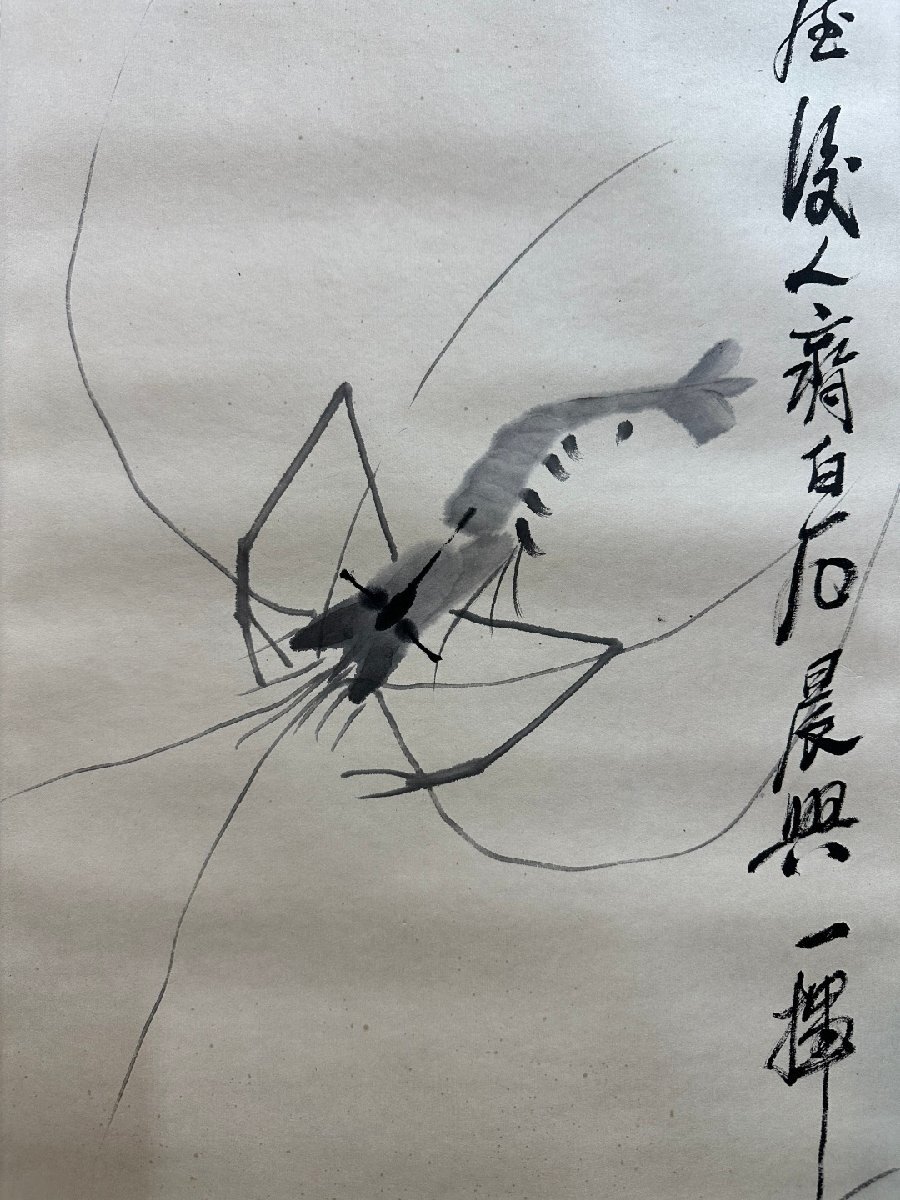 屋後人齊白石晨興一揮